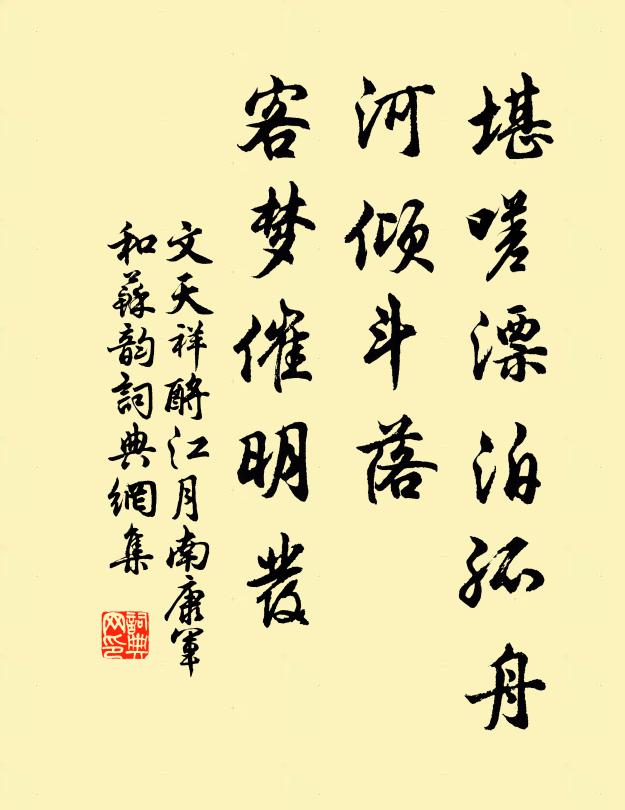 堪嗟漂泊孤舟
河倾斗落
客梦催明發
文天祥酹江月南康軍
和蘇韵詞典網集
詞典網印